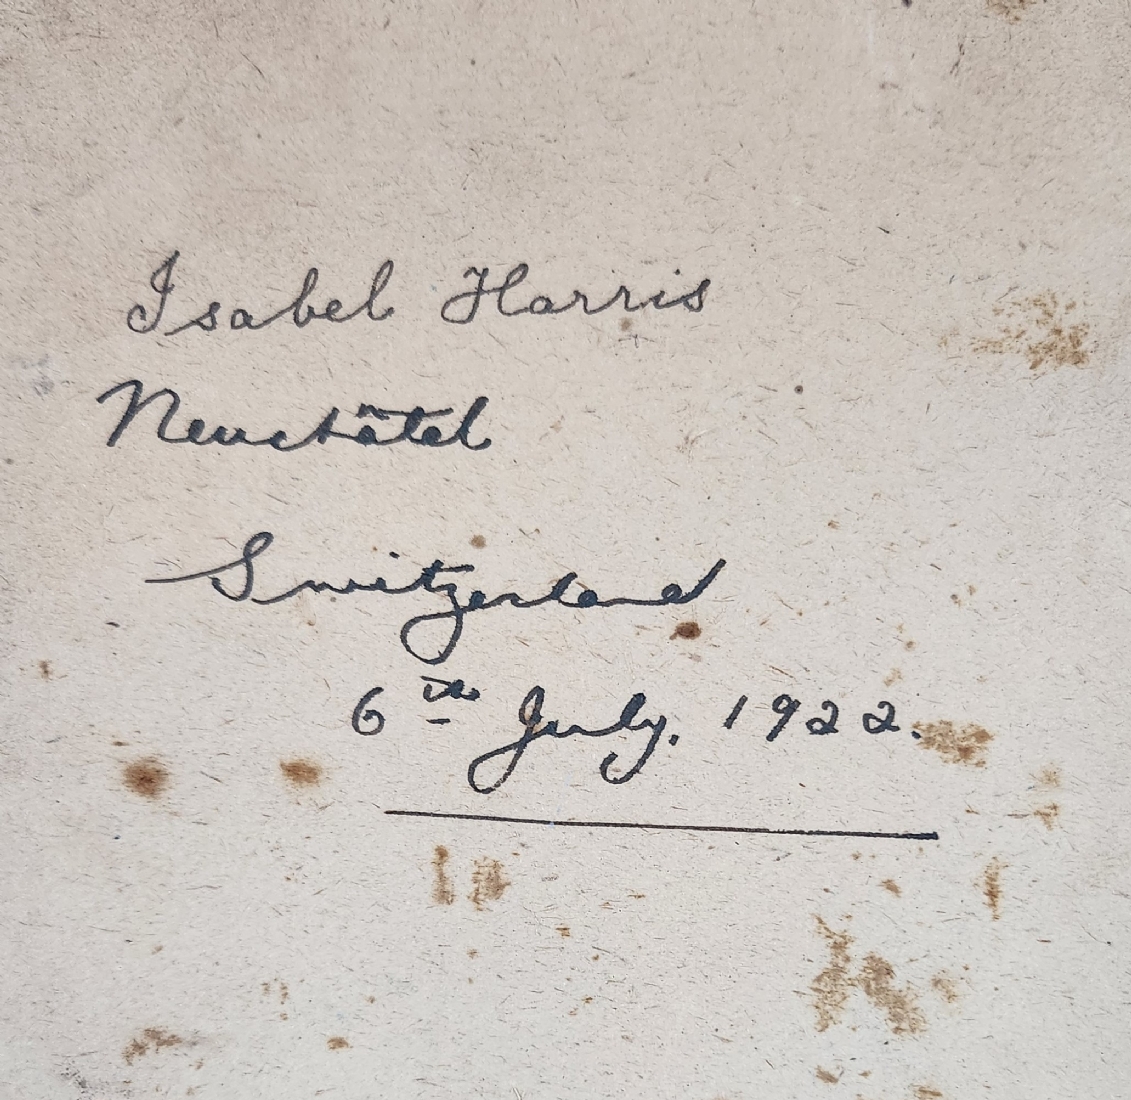 Isabel Harris
Neuchâtel
Switzerland
6th July. 1922.